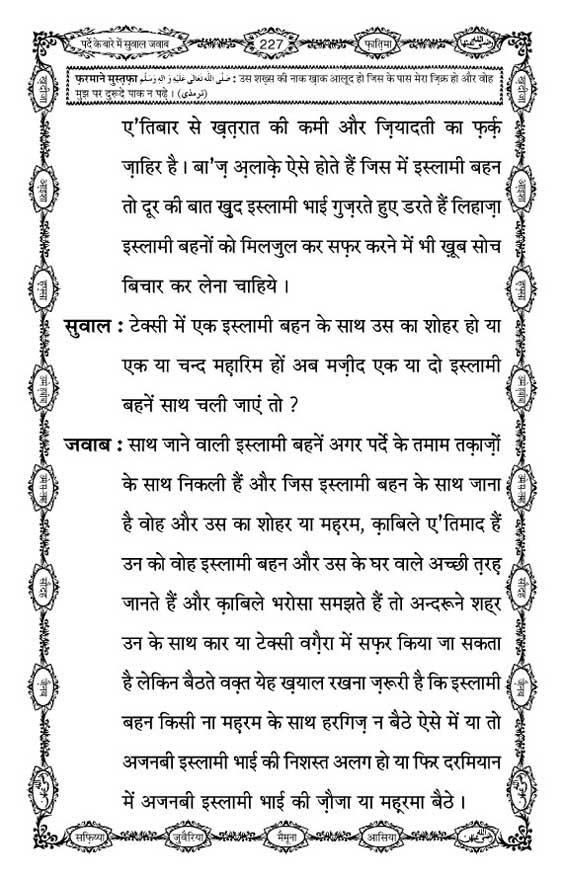 पर्दे के बारे में सुवाल जवाब
227
फ़ातिमा
फ़रमाने मुस्तफ़ा صَلَّى اللهُ تَعَالٰى عَلَيْهِ وَاٰلِهٖ وَسَلَّم : उस शख़्स की नाक ख़ाक आलूद हो जिस के पास मेरा ज़िक्र हो और वोह
मुझ पर दुरूदे पाक न पढ़े । (ترمذی)
ए'तिबार से ख़त़रात की कमी और ज़ियादती का फ़र्क़
ज़ाहिर है । बा'ज़ अ़लाक़े ऐसे होते हैं जिस में इस्लामी बहन
तो दूर की बात खुद इस्लामी भाई गुज़रते हुए डरते हैं लिहाज़ा
इस्लामी बहनों को मिलजुल कर सफ़र करने में भी ख़ूब सोच
बिचार कर लेना चाहिये ।
सुवाल : टेक्सी में एक इस्लामी बहन के साथ उस का शोहर हो या
एक या चन्द मह़ारिम हों अब मज़ीद एक या दो इस्लामी
बहनें साथ चली जाएं तो ?
जवाब : साथ जाने वाली इस्लामी बहनें अगर पर्दे के तमाम तक़ाज़ों
के साथ निकली हैं और जिस इस्लामी बहन के साथ जाना
है वोह और उस का शोहर या महरम, क़ाबिले ए'तिमाद हैं
उन को वोह इस्लामी बहन और उस के घर वाले अच्छी त़रह़
जानते हैं और क़ाबिले भरोसा समझते हैं तो अन्दरूने शह्र
उन के साथ कार या टेक्सी वग़ैरा में सफ़र किया जा सकता
है लेकिन बैठते वक़्त येह ख़याल रखना ज़रूरी है कि इस्लामी
बहन किसी ना महरम के साथ हरगिज़ न बैठे ऐसे में या तो
अजनबी इस्लामी भाई की निशस्त अलग हो या फिर दरमियान
में अजनबी इस्लामी भाई की ज़ौजा या मह़रमा बैठे ।
सफ़िय्या
जुवैरिया
मैमूना
आसिया